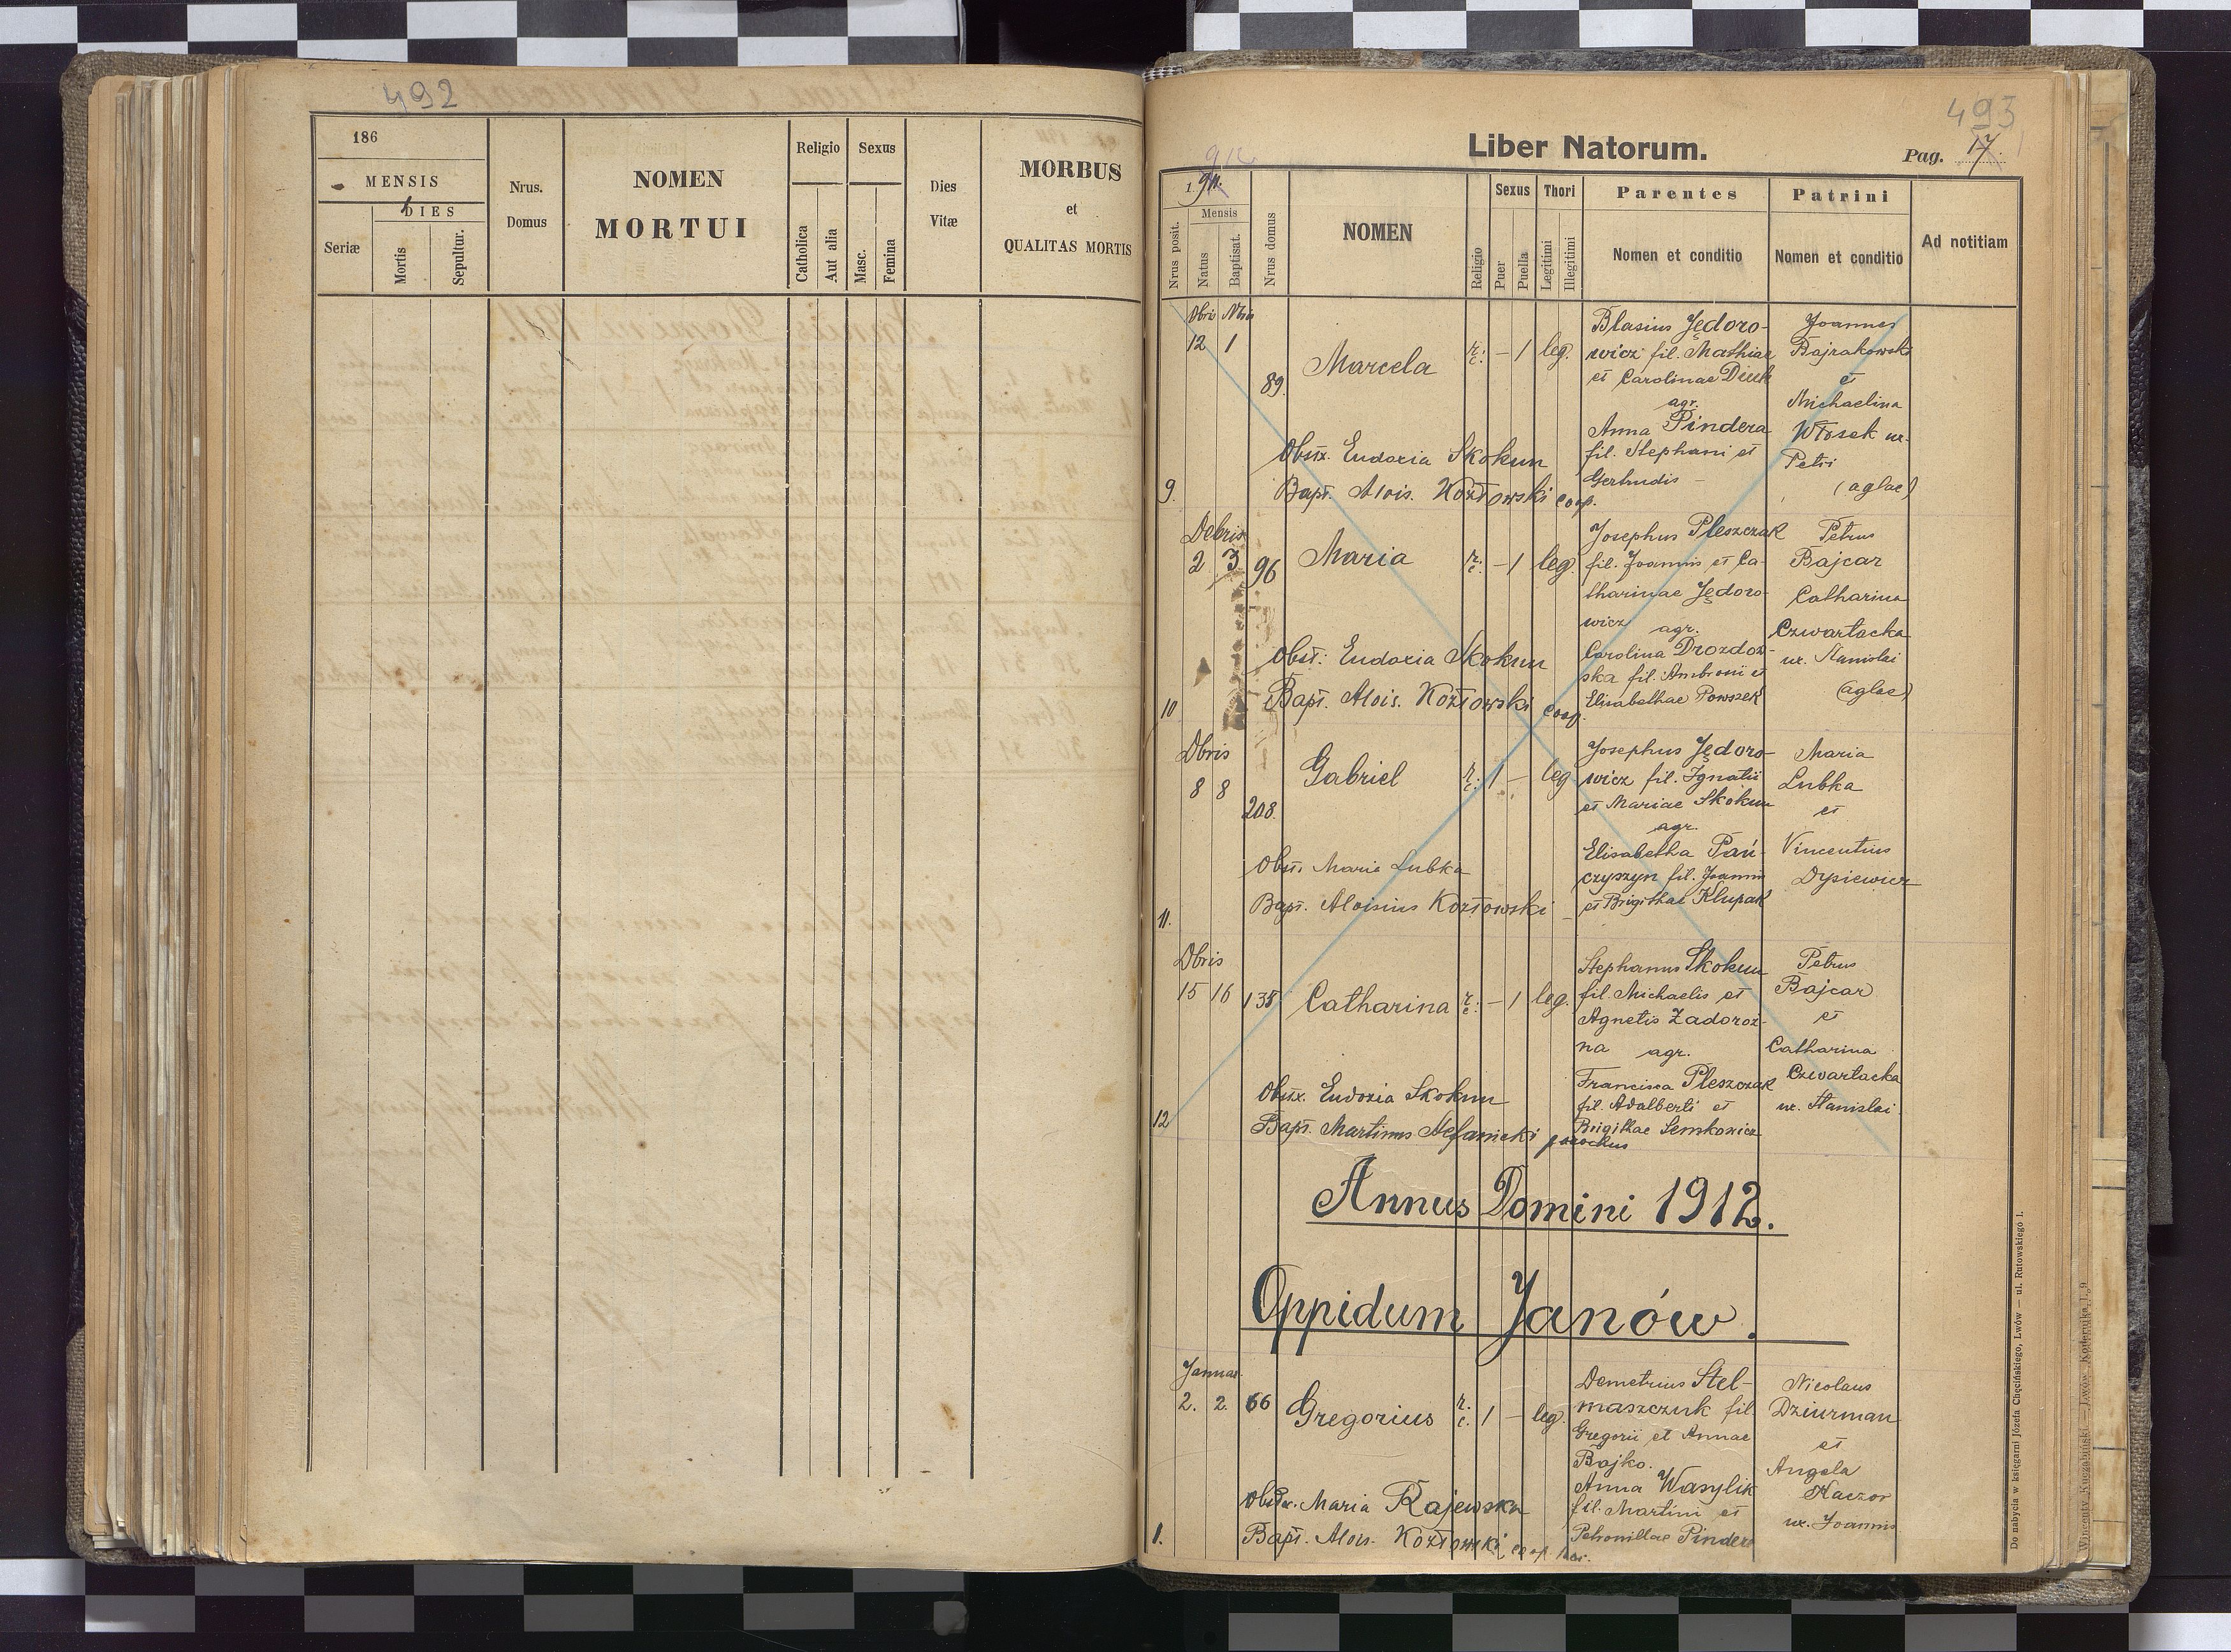 492
186
MENSIS
DIES
Seriæ
Mortis
Sepultur.
Nrus.
Domus
NOMEN
MORTUI
Religio
Catholica
Aut alia
Sexus
Masc.
Femina
Dies
Vitæ
MORBUS
et
QUALITAS MORTIS
493
Liber Natorum.
Pag. 17
912
1.911.
Nrus posit.
Mensis
Natus
Baptisat.
Nrus domus
NOMEN
Religio
Sexus
Puer
Puella
Thori
Legitimi
Illegitimi
Parentes
Nomen et conditio
Patrini
Nomen et conditio
Ad notitiam
9.
Obris Nbris
12 1
89.
Marcela
r. c. – 1 leg.
Obstx. Eudoxia Skokun
Bapt. Alois. Kozłowski coop.
Blasius Jędoro-
wicz fil. Mathiae
et Carolinae Diuk
agr.
Anna Pindera
fil. Stephani et
Gertrudis –
Joannes
Bajrakowski
et
Michaelina
Włosek ux.
Petri
(aglae)
10
Debris
2 3
96
Maria
r. c. – 1 leg.
Obst: Eudoxia Skokun
Bapt. Alois. Kozłowski coop.
Josephus Pleszczak
fil. Joannis et Ca-
tharinae Jędoro-
wicz agr.
Carolina Drozdow-
ska fil. Ambrosii et
Elisabethae Powszek
Petrus
Bajcar
Catharina
Czwartacka
ux. Stanislai
(aglae)
11.
Dbris
8 8
208.
Gabriel
r. c. 1 – leg.
Obst. Maria Lubka
Bapt. Aloisius Kozłowski –
Josephus Jędoro-
wicz fil. Ignatii
et Mariae Skokun
agr.
Elisabetha Pań-
czyszyn fil. Joannis
et Brigithae Klupak
Maria
Lubka
et
Vincentius
Dysiewicz
12
Dbris
15 16
135
Catharina
r. c. – 1 leg.
Obstx. Eudoxia Skokun
Bapt. Martinus Stefanicki parochus
Stephanus Skokun
fil. Michaelis et
Agnetis Zadoroż-
na agr.
Francisca Pleszczak
fil. Adalberti et
Brigithae Semkowicz
Petrus
Bajcar
et
Catharina
Czwartacka
ux. Stanislai
Annus Domini 1912.
Oppidum Janów.
1.
Januar.
2. 2.
66
Gregorius
r. c. 1 – leg.
Obstx. Maria Rajewska
Bapt. Alois. Kozłowski coop.
Demetrius Stel-
maszczuk fil.
Gregorii et Annae
Bojko.
Anna Wasylik
fil. Martini et
Petronillae Pindera
Nicolaus
Dziurman
et
Angela
Kaczor
ux. Joannis
Do nabycia w księgarni Józefa Chęcińskiego, Lwów — ul. Rutowskiego 1.